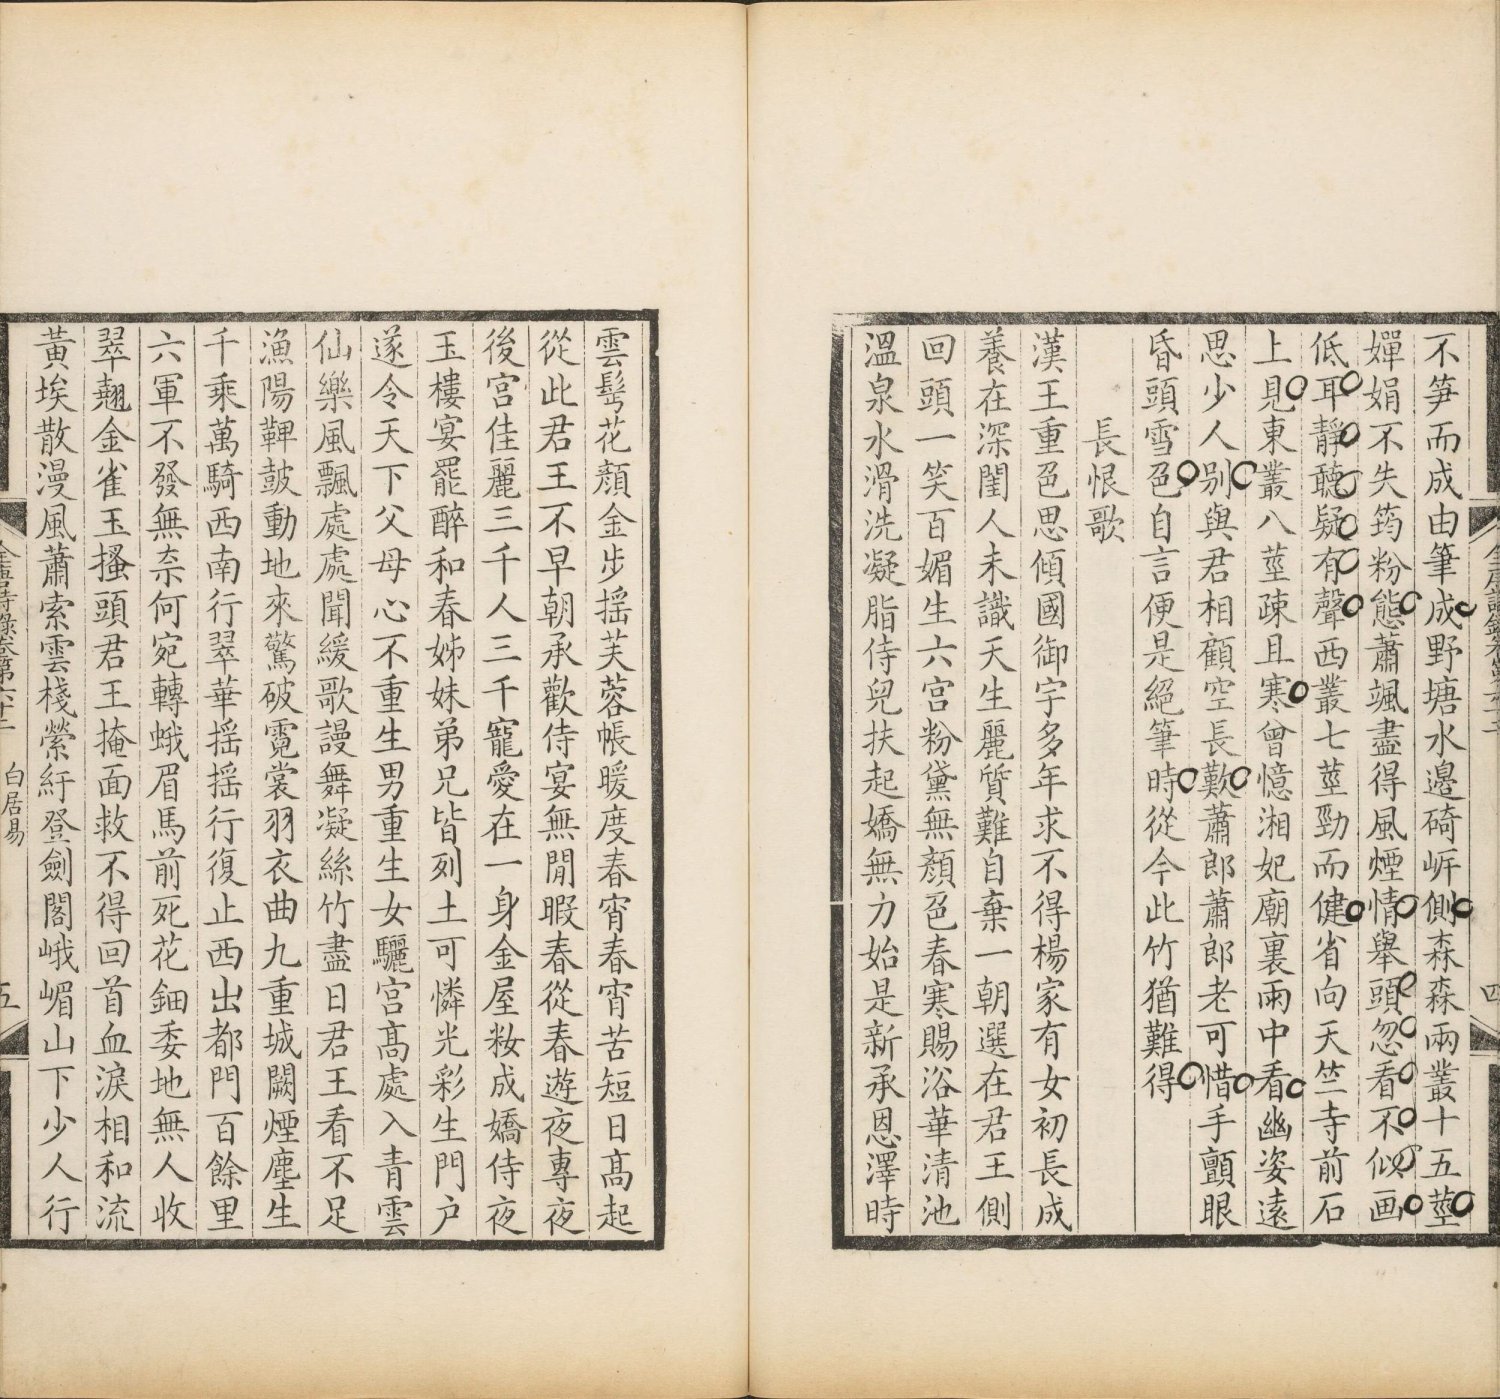 不笋而成由筆成野塘水邊碕岓側森森兩叢十五莖
嬋娟不失筠粉態蕭颯盡得風煙情舉頭忽看不似画
低耳靜聽疑有聲西叢七莖勁而健省向天竺寺前石
上見東叢八莖疎且寒曾憶湘妃廟裏雨中看幽姿遠
思少人别與君相顧空長歎蕭郎蕭郎老可惜手顫眼
昏頭雪色自言便是絕筆時從今此竹猶難得
長恨歌
漢王重色思傾國御宇多年求不得楊家有女初長成
養在深閨人未識天生麗質難自棄一朝選在君王側
回頭一笑百媚生六宮粉黛無顏色春寒賜浴華清池
溫泉水滑洗凝脂侍兒扶起嬌無力始是新承恩澤時
雲髩花顏金步摇芙蓉帳暖度春宵春宵苦短日髙起
從此君王不早朝承歡侍宴無閒暇春從春遊夜專夜
後宮佳麗三千人三千寵愛在一身金屋粧成嬌侍夜
玉樓宴罷醉和春姊妹弟兄皆列土可憐光彩生門户
遂令天下父母心不重生男重生女驪宮髙處入青雲
仙樂風飄處處聞緩歌謾舞凝絲竹盡日君王看不足
漁陽鞞皷動地來驚破霓裳羽衣曲九重城闕煙塵生
千乘萬騎西南行翠華摇摇行復止西出都門百餘里
六軍不發無奈何宛轉蛾眉馬前死花鈿委地無人收
翠翹金雀玉搔頭君王掩面救不得回首血淚相和流
黃埃散漫風蕭索雲棧縈紆登劍閣峨嵋山下少人行
白居易
五